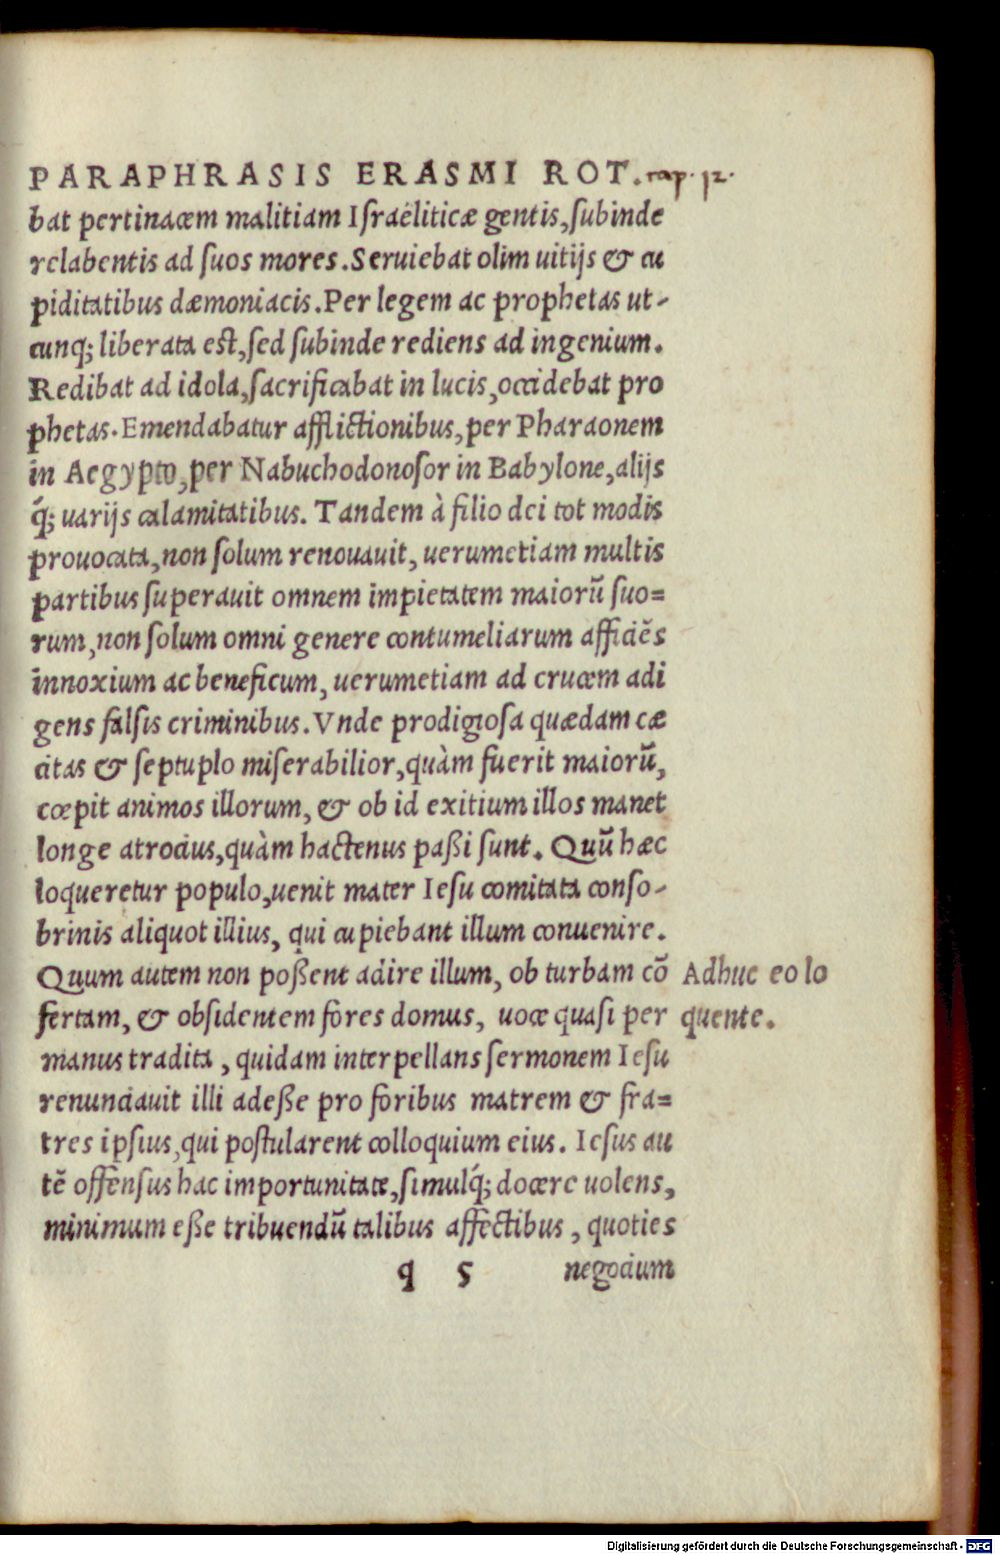 PARAPHRASIS ERASMI ROT. cap. 12.
bat pertinacem malitiam Iſraëliticæ gentis, ſubinde
relabentis ad ſuos mores. Seruiebat olim uitijs & cu
piditatibus dæmoniacis. Per legem ac prophetas ut-
cunq; liberata eſt, ſed ſubinde rediens ad ingenium.
Redibat ad idola, ſacrificabat in lucis, occidebat pro
phetas. Emendabatur afflictionibus, per Pharaonem
in Aegypto, per Nabuchodonoſor in Babylone, alijs
q́; uarijs calamitatibus. Tandem à filio dei tot modis
prouocata, non ſolum renouauit, uerumetiam multis
partibus ſuperauit omnem impietatem maiorũ ſuo=
rum, non ſolum omni genere contumeliarum afficiẽs
innoxium ac beneficum, uerumetiam ad crucem adi
gens falſis criminibus. Vnde prodigioſa quædam cæ
citas & ſeptuplo miſerabilior, quàm fuerit maiorũ,
cœpit animos illorum, & ob id exitium illos manet
longe atrocius, quàm hactenus paßi ſunt. Quũ hæc
loqueretur populo, uenit mater Ieſu comitata conſo-
brinis aliquot illius, qui cupiebant illum conuenire.
Quum autem non poßent adire illum, ob turbam cõ
fertam, & obſidentem fores domus, uoce quaſi per
manus tradita, quidam interpellans ſermonem Ieſu
renunciauit illi adeße pro foribus matrem & fra=
tres ipſius, qui poſtularent colloquium eius. Ieſus au
tẽ offenſus hac importunitate, ſimulq́; docere uolens,
minimum eße tribuendũ talibus affectibus, quoties
q 5 negocium
Adhuc eo lo
quente.
Digitalisierung gefördert durch die Deutsche Forschungsgemeinschaft - DFG